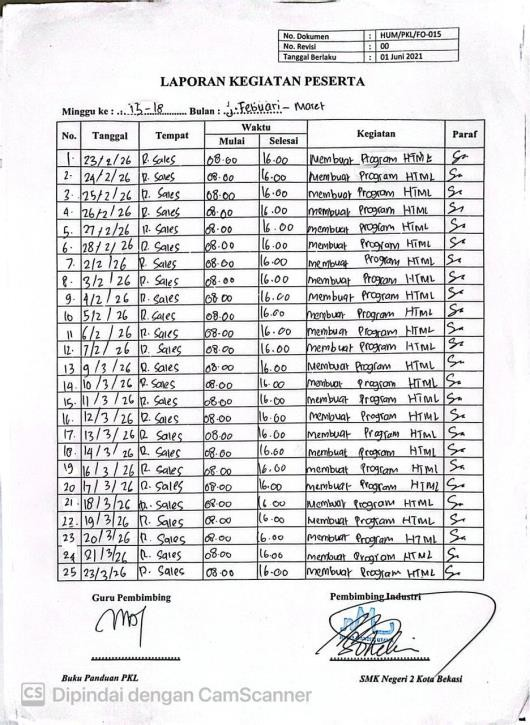 No. Dokumen : HUM/PKL/FO-015
No. Revisi : 00
Tanggal Berlaku : 01 Juni 2021
LAPORAN KEGIATAN PESERTA
Minggu ke : 15-18 Bulan : Febuari - Maret
No. Tanggal Tempat Waktu Kegiatan Paraf
Mulai Selesai
1. 23/2/26 R. Sales 08.00 16.00 Membuat Program HTML
2. 24/2/26 R. Sales 08.00 16.00 Membuat Program HTML
3. 25/2/26 R. Sales 08.00 16.00 membuat Program HTML
4. 26/2/26 R. Sales 08.00 16.00 membuat Program HTML
5. 27/2/26 R. Sales 08.00 16.00 membuat Program HTML
6. 28/2/26 R. Sales 08.00 16.00 membuat Program HTML
7. 2/2/26 R. Sales 08.00 16.00 membuat Program HTML
8. 3/2/26 R. Sales 08.00 16.00 membuat Program HTML
9. 4/2/26 R. Sales 08.00 16.00 membuat Program HTML
10 5/2/26 R. Sales 08.00 16.00 membuat Program HTML
11 6/2/26 R. Sales 08.00 16.00 membuat Program HTML
12. 7/2/26 R. Sales 08.00 16.00 membuat Program HTML
13 9/3/26 R. Sales 08.00 16.00 Membuat Program HTML
14. 10/3/26 R. Sales 08.00 16.00 membuat Program HTML
15. 11/3/26 R. Sales 08.00 16.00 membuat Program HTML
16. 12/3/26 R. Sales 08.00 16.00 membuat Program HTML
17. 13/3/26 R. Sales 08.00 16.00 membuat Program HTML
18. 14/3/26 R. Sales 08.00 16.00 membuat Program HTML
19 16/3/26 R. Sales 08.00 16.00 membuat Program HTML
20 17/3/26 R. Sales 08.00 16.00 membuat Program HTML
21. 18/3/26 R. Sales 08.00 16.00 Membuat Program HTML
22. 19/3/26 R. Sales 08.00 16.00 Membuat Program HTML
23 20/3/26 R. Sales 08.00 16.00 membuat Program HTML
24 21/3/26 R. Sales 08.00 16.00 membuat Program HTML
25 23/3/26 R. Sales 08.00 16.00 membuat Program HTML
Guru Pembimbing Pembimbing Industri
Buku Panduan PKL SMK Negeri 2 Kota Bekasi
CS Dipindai dengan CamScanner